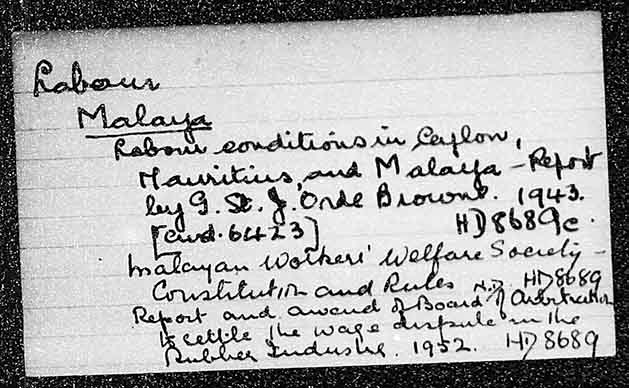 Labour
Malaya
Labour conditions in Ceylon,
Mauritius, and Malaya - Report
by G. St. J. Orde Browne. 1943.
[Cmd. 6423] HD8689c.
Malayan Workers' Welfare Society -
Constitution and Rules N.D. HD8689
Report and award of Board of Arbitration
to settle the wage dispute in the
Rubber Industry. 1952. HD8689